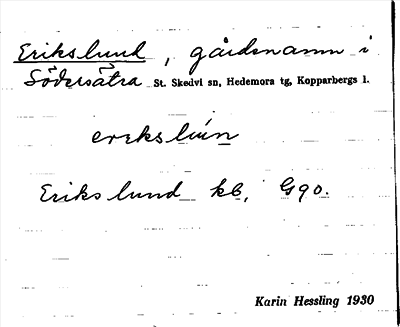 Erikslund, gårdsnamn i
Södersätra St. Skedvi sn, Hedemora tg, Kopparbergs l.
Erikslund kb, G90.
Karin Hessling 1930